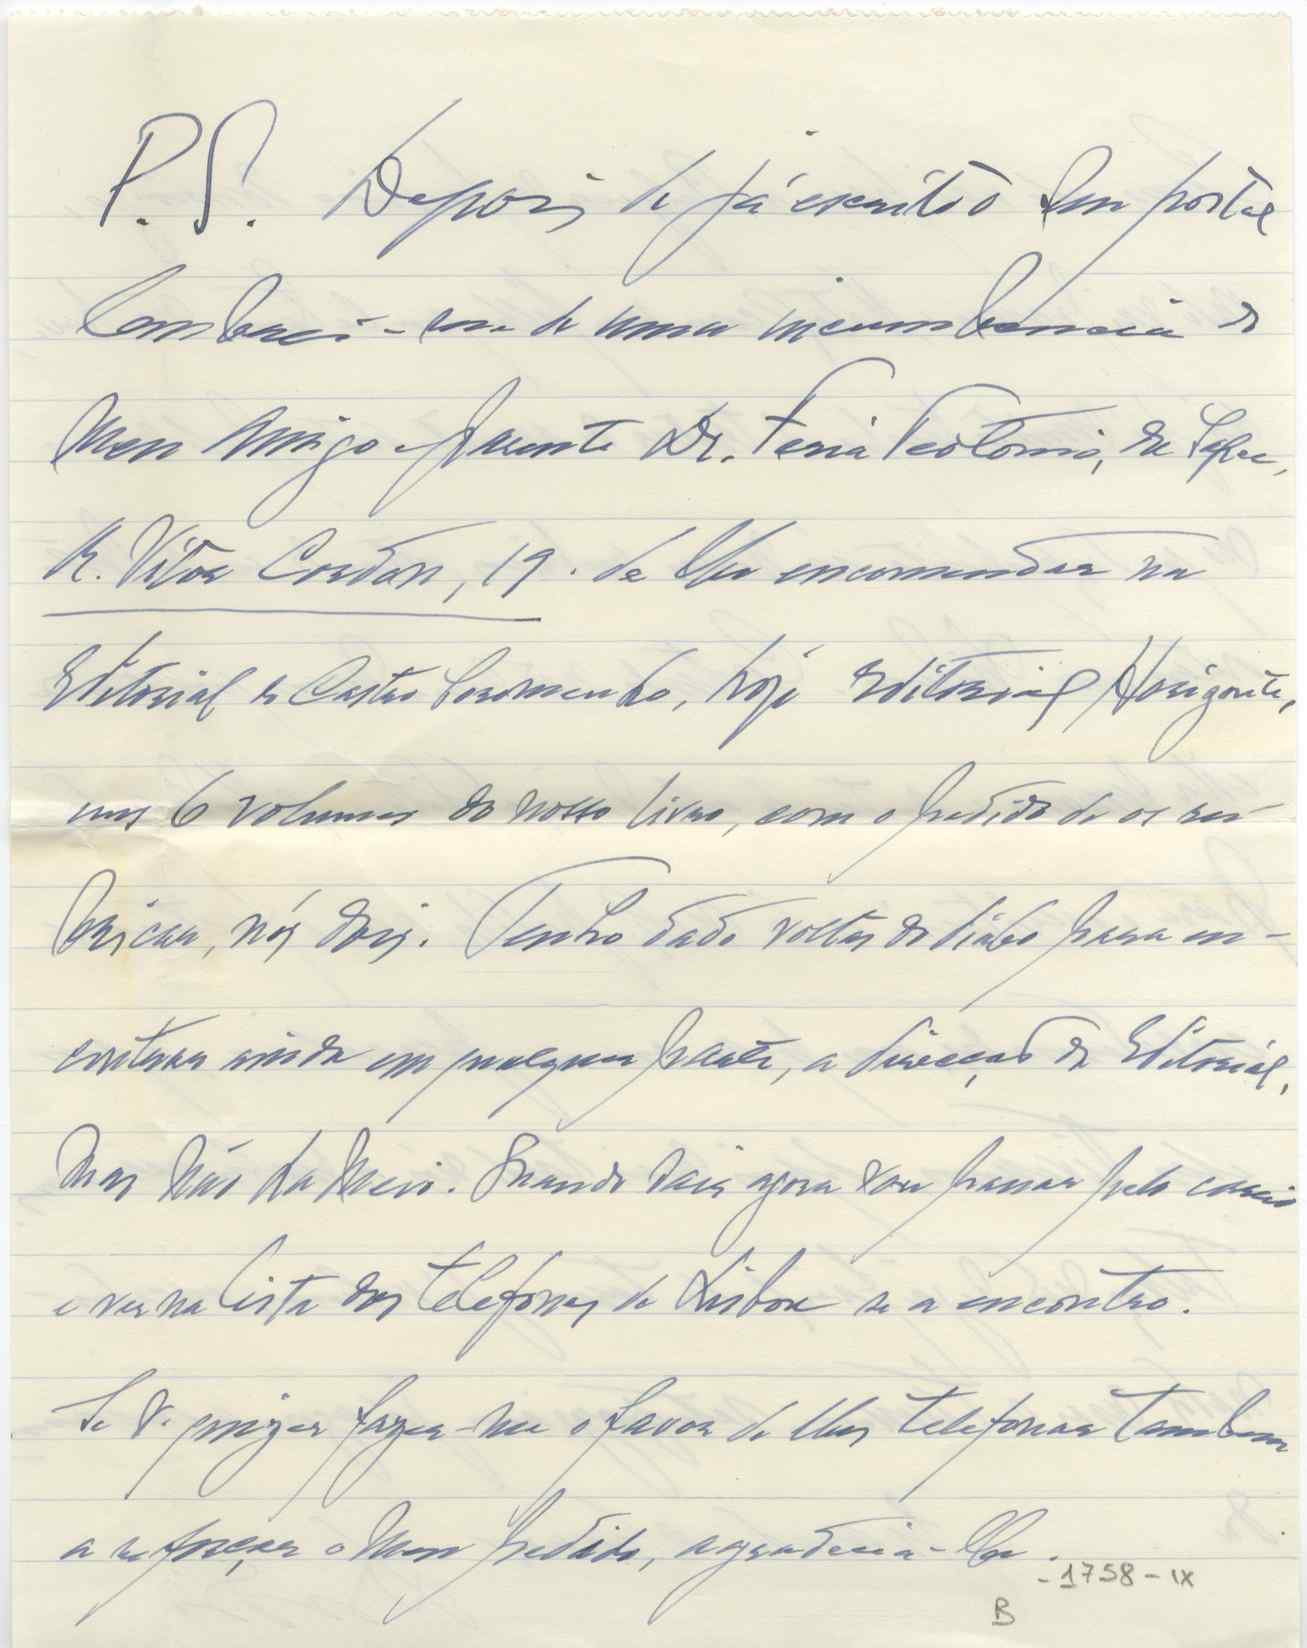 P.S. Depois de já escrito o seu postal
lembrei-me de uma incumbencia do
meu Amigo e parente Dr. Faria Teotonio, da
R. Vitor Cordon, 19. de lhe encomendar na
Editorial de Castro Soromenho, hoje Editorial Horizonte,
uns 6 volumes do nosso livro, com o pedido de os ru-
bricar, nós dois. Tenho dado voltas do diabo para en-
contrar ainda em qualquer parte, a direcção da Editorial,
mas não ha meio. Quando sair agora vou passar pelo correio
e ver na lista dos telefones de Lisboa se a encontro.
Se V. quizer fazer-me o favor de lhes telefonar tambem
a reforçar o meu pedido, agradecia-lhe.
-1758-IX
B